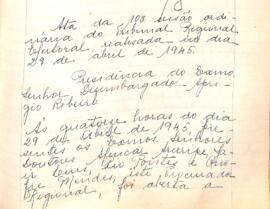 Ata da 108 sessão ordi-
nária do Tribunal Regional
Eleitoral, realisada no dia
29 de abril de 1945.
Presidência do Exmo.
Senhor Desembargador
Ribeiro
Às quatorze horas do dia
29 de Abril de 1945, pre-
sentes os Exmos Senhores
Doutores Alencar Araripe,
e
Mendes, este, 
Regional, foi aberta a